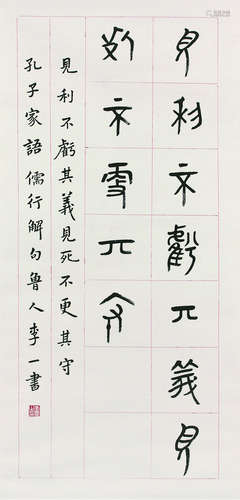 見利不虧亓義見
死不更亓守
見利不虧其義見死不更其守
孔子家語儒行解句魯人李一書